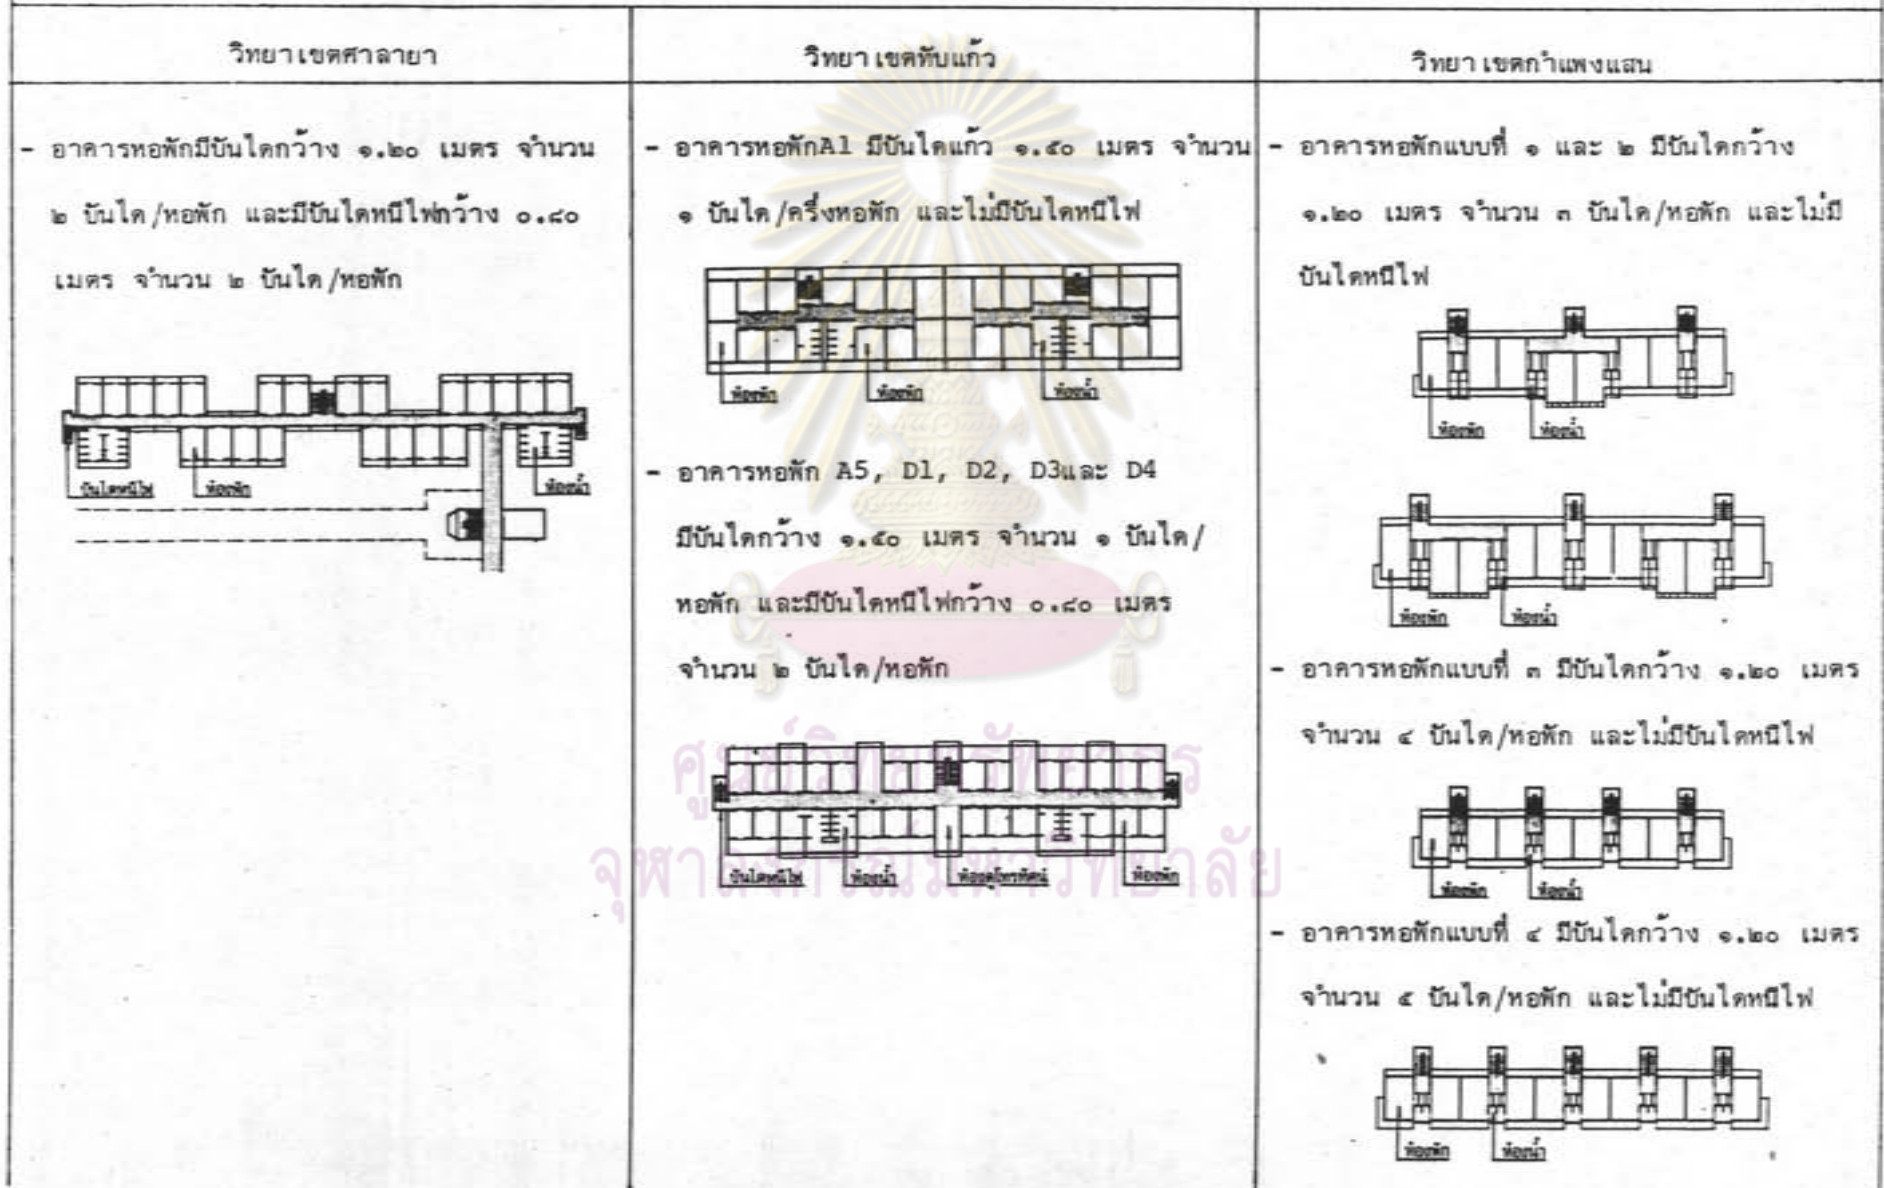 วิทยาเขตศาลายา
- อาคารหอพักมีบันไดกว้าง ๑.๒๐ เมตร จำนวน
๒ บันได/หอพัก และมีบันไดหนีไฟกว้าง ๐.๘๐
เมตร จำนวน ๒ บันได/หอพัก
บันไดหนีไฟ
ห้องพัก
ห้องน้ำ
วิทยาเขตทับแก้ว
- อาคารหอพักA1 มีบันไดแก้ว ๑.๕๐ เมตร จำนวน
๑ บันได/ครึ่งหอพัก และไม่มีบันไดหนีไฟ
ห้องพัก
ห้องพัก
ห้องน้ำ
- อาคารหอพัก A5, D1, D2, D3และ D4
มีบันไดกว้าง ๑.๕๐ เมตร จำนวน ๑ บันได/
หอพัก และมีบันไดหนีไฟกว้าง ๐.๘๐ เมตร
จำนวน ๒ บันได/หอพัก
บันไดหนีไฟ
ห้องน้ำ
ห้องดูโทรทัศน์
ห้องพัก
วิทยาเขตกำแพงแสน
- อาคารหอพักแบบที่ ๑ และ ๒ มีบันไดกว้าง
๑.๒๐ เมตร จำนวน ๓ บันได/หอพัก และไม่มี
บันไดหนีไฟ
ห้องพัก
ห้องน้ำ
ห้องพัก
ห้องน้ำ
- อาคารหอพักแบบที่ ๓ มีบันไดกว้าง ๑.๒๐ เมตร
จำนวน ๔ บันได/หอพัก และไม่มีบันไดหนีไฟ
ห้องพัก
ห้องน้ำ
- อาคารหอพักแบบที่ ๔ มีบันไดกว้าง ๑.๒๐ เมตร
จำนวน ๕ บันได/หอพัก และไม่มีบันไดหนีไฟ
ห้องพัก
ห้องน้ำ
ศูนย์วิทยทรัพยากร
จุฬาลงกรณ์มหาวิทยาลัย